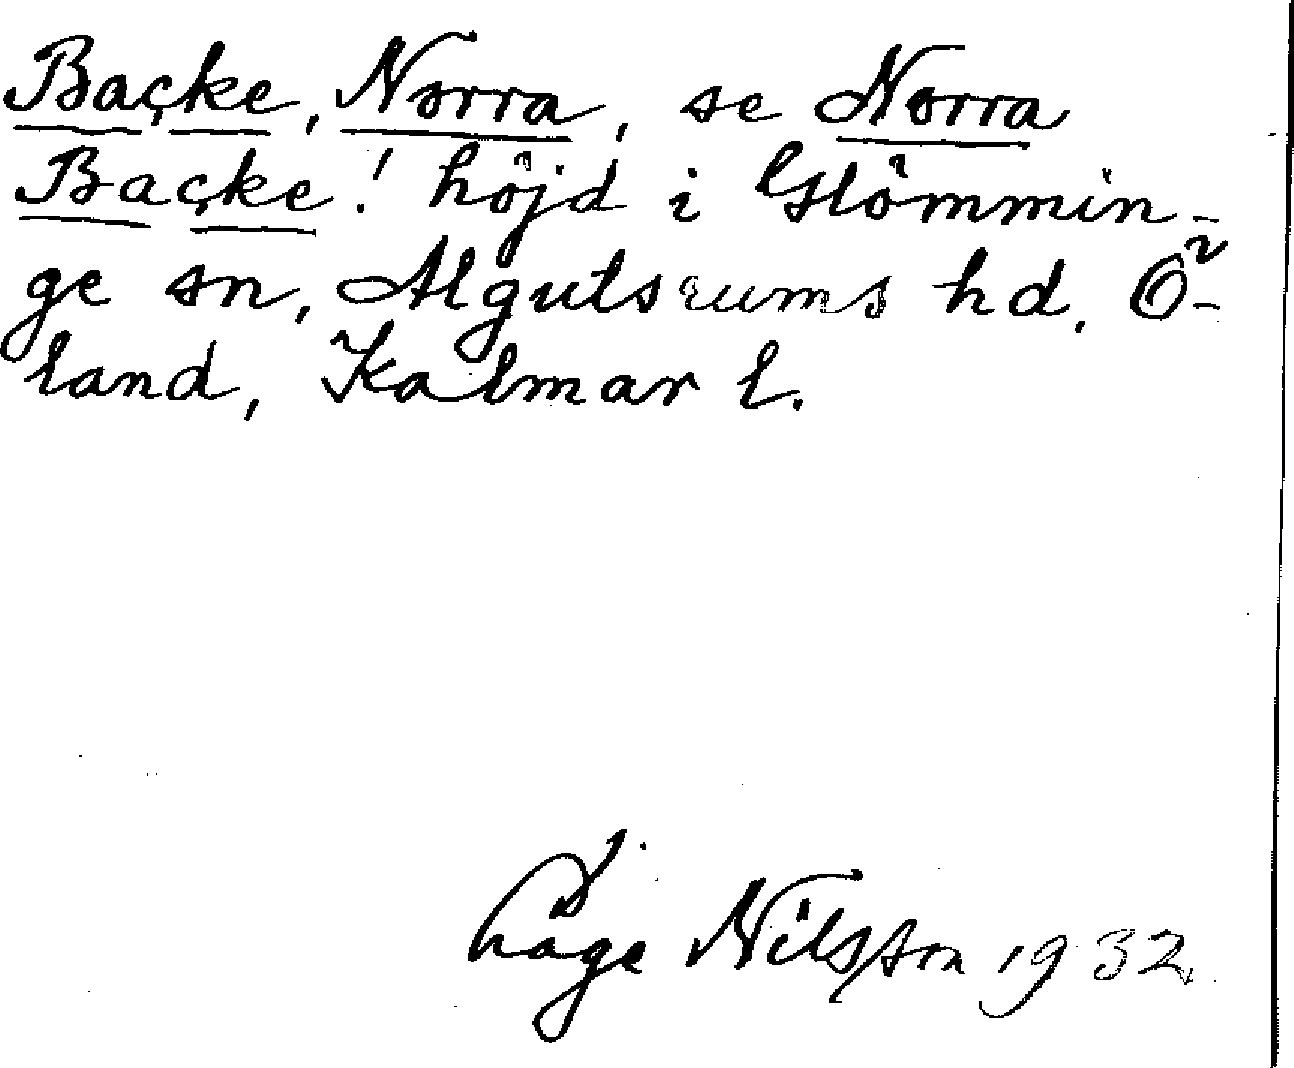 Backe, Norra, se Norra
Backe! höjd i Glömmin-
ge sn, Algutsrums hd, Ö-
land, Kalmar l.
Låge Nilsson 1932.